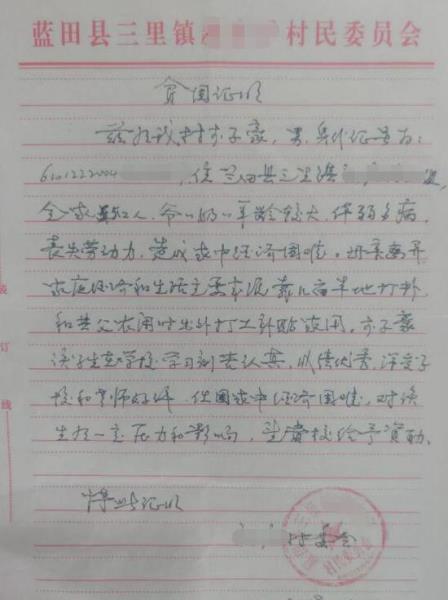 蓝田县三里镇 村民委员会
贫困证明
兹有我村亦子豪，男，身份证号为：
6101222004 ，住兰田县三里镇
全家 人，爷爷奶奶年龄较大，体弱多病，
丧失劳动力，造成家中经济困难。母亲离开
家庭经济和生活主要来源靠几亩旱地
和其父农闲时出外打工补贴家用，亦子豪
该生在学校学习刻苦认真，成绩优秀，深受学
校和老师好评，但因家中经济困难，对该
生有一定压力和影响，望贵校给予资助。
特此证明
村委会
装
订
线